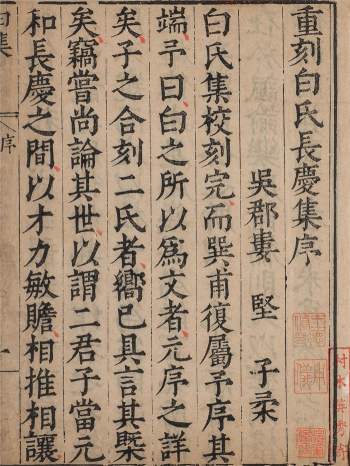 重刻白氏長慶集序
吳郡婁堅子柔
白氏集校刻完而巽甫復屬予序其
端予曰白之所以為文者元序之詳
矣予之合刻二氏者嚮已具言其槩
矣竊嘗尚論其世以謂二君子當元
和長慶之間以才力敏贍相推相讓
序